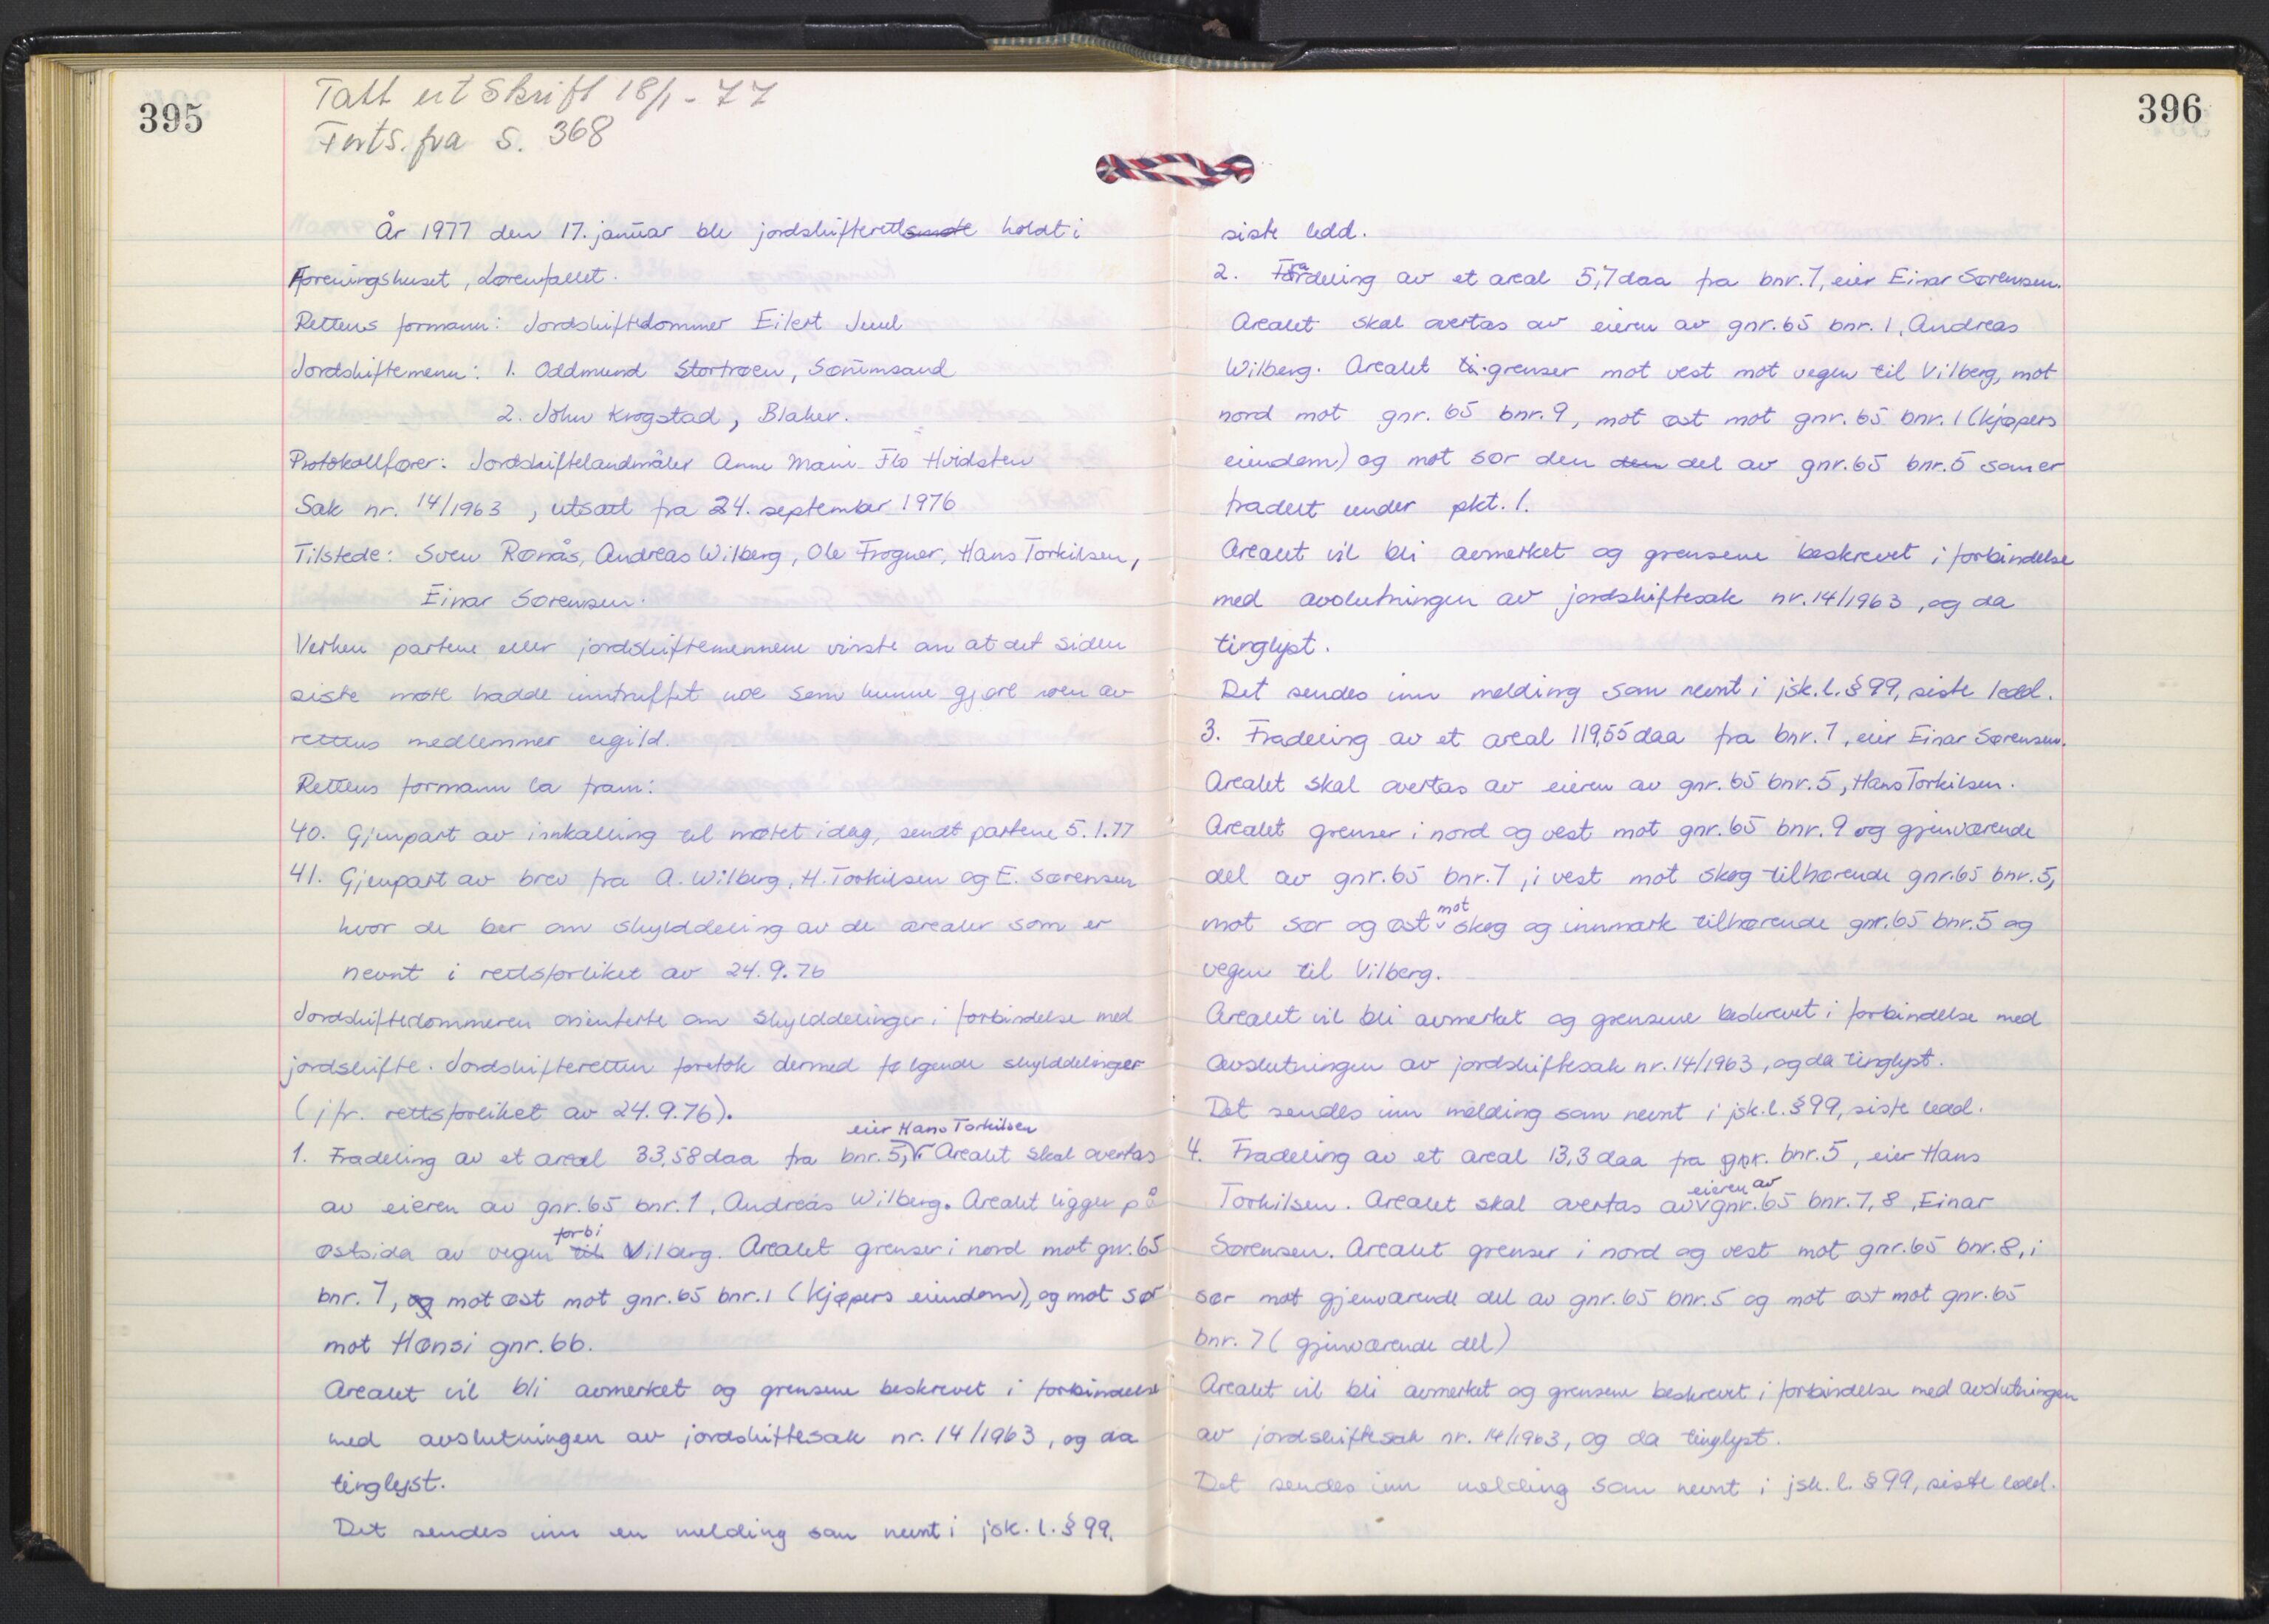 395
Tatt utskrift 18/1-77
Forts. fra s. 368
År 1977 den 17. januar ble jordskifterettsmøte holdt i
Foreningshuset, Lørenfallet.
Rettens formann: Jordskiftedommer Eilert Juul
Jordskiftemenn: 1. Oddmund Stortrøen, Sørumsand
2. John Krogstad, Blaker.
Protokollfører: Jordskiftelandmåler Anne Marie Flo Hvidsten
Sak nr. 14/1963, utsatt fra 24. september 1976
Tilstede: Sven Rønås, Andreas Wilberg, Ole Frogner, Hans Torkilsen,
Einar Sørensen.
Verken partene eller jordskiftemennene visste om at det siden
siste møte hadde inntruffet noe som kunne gjøre noen av
rettens medlemmer ugild.
Rettens formann la fram:
40. Gjenpart av innkalling til møtet idag, sendt partene 5.1.77
41. Gjenpart av brev fra A. Wilberg, H. Torkilsen og E. Sørensen
hvor de ber om skylddeling av de arealer som er
nevnt i rettsforliket av 24.9.76
Jordskiftedommeren orienterte om skylddelinger i forbindelse med
jordskifte. Jordskifteretten foretok dermed følgende skylddelinger
(jfr. rettsforliket av 24.9.76).
1. Fradeling av et areal 33,58 daa fra bnr. 5, eier Hans Torkilsen. Arealet skal overtas
av eieren av gnr. 65 bnr. 1, Andreas Wilberg. Arealet ligger på
østsida av vegen til forbi Vilberg. Arealet grenser i nord mot gnr. 65
bnr. 7, og mot øst mot gnr. 65 bnr. 1 (kjøpers eiendom), og mot sør
mot Hønsi gnr. 66.
Arealet vil bli avmerket og grensene beskrevet i forbindelse
med avslutningen av jordskiftesak nr. 14/1963, og da
tinglyst.
Det sendes inn en melding som nevnt i jsk.l. § 99.
396
siste ledd.
2. Fradeling av et areal 5,7 daa fra bnr. 7, eier Einar Sørensen.
Arealet skal overtas av eieren av gnr. 65 bnr. 1, Andreas
Wilberg. Arealet grenser mot vest mot vegen til Vilberg, mot
nord mot gnr. 65 bnr. 9, mot øst mot gnr. 65 bnr. 1 (kjøpers
eiendom) og mot sør den den del av gnr. 65 bnr. 5 som er
fradelt under pkt. 1.
Arealet vil bli avmerket og grensene beskrevet i forbindelse
med avslutningen av jordskiftesak nr. 14/1963, og da
tinglyst.
Det sendes inn melding som nevnt i jsk.l. § 99, siste ledd.
3. Fradeling av et areal 119,55 daa fra bnr. 7, eier Einar Sørensen.
Arealet skal overtas av eieren av gnr. 65 bnr. 5, Hans Torkilsen.
Arealet grenser i nord og vest mot gnr. 65 bnr. 9 og gjenværende
del av gnr. 65 bnr. 7, i vest mot skog tilhørende gnr. 65 bnr. 5,
mot sør og øst mot skog og innmark tilhørende gnr. 65 bnr. 5 og
vegen til Vilberg.
Arealet vil bli avmerket og grensene beskrevet i forbindelse med
avslutningen av jordskiftesak nr. 14/1963, og da tinglyst.
Det sendes inn melding som nevnt i jsk.l. § 99, siste ledd.
4. Fradeling av et areal 13,3 daa fra gnr. bnr. 5, eier Hans
Torkilsen. Arealet skal overtas av eieren av gnr. 65 bnr. 7, 8, Einar
Sørensen. Arealet grenser i nord og vest mot gnr. 65 bnr. 8, i
sør mot gjenværende del av gnr. 65 bnr. 5 og mot øst mot gnr. 65
bnr. 7 (gjenværende del)
Arealet vil bli avmerket og grensene beskrevet i forbindelse med avslutningen
av jordskiftesak nr. 14/1963, og da tinglyst.
Det sendes inn melding som nevnt i jsk.l. § 99, siste ledd.